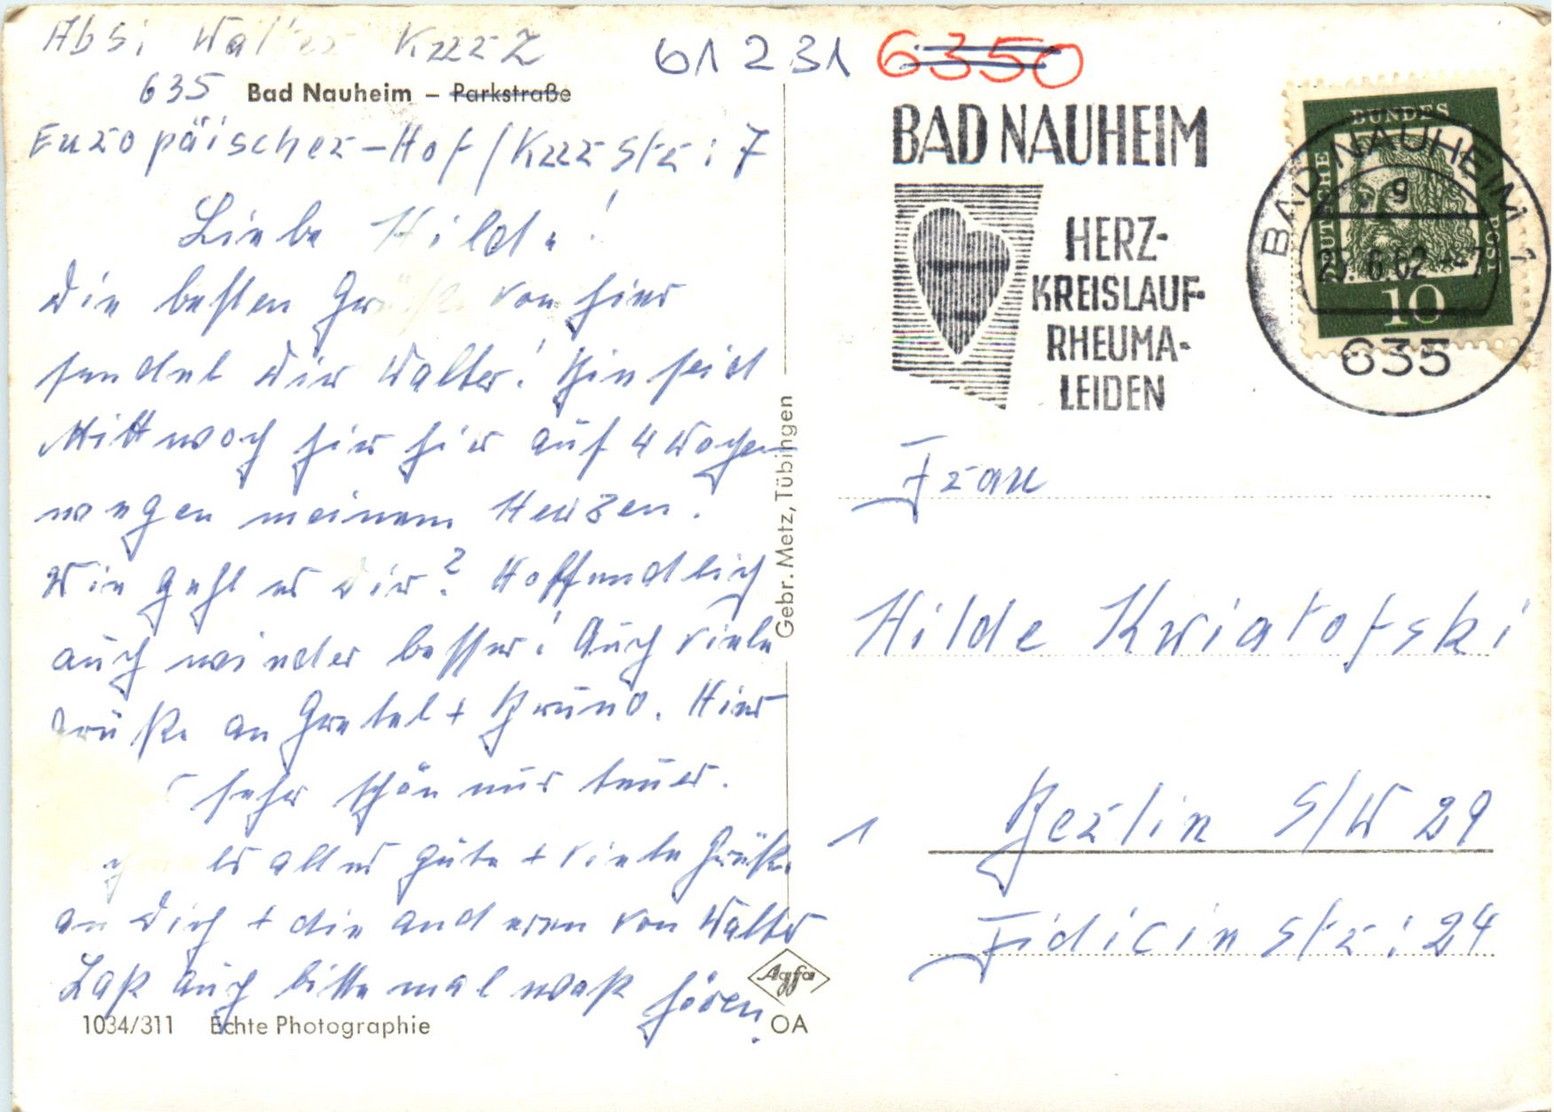 Abs: Walter
635 Bad Nauheim – Parkstraße
Europäischer-Hof / Kurrstr: 7
Liebe Hilde!
die besten Grüße von hier
sendet dir Walter! Bin seid
Mittwoch hier hir auf 4 Wochen
wegen meinem Herzen.
Wie geht es dir? Hoffendlich
auch wieder besser! Auch viele
Grüße an Gretel + Bruno. Hier
sehr schön nur teuer.
es alles gute + viele Grüße
an dich + die anderen von Walter
Laß auch bitte mal waß hören.
1034/311 Echte Photographie
Gebr. Metz, Tübingen
Agfa
OA
61231 6350
BAD NAUHEIM
HERZ-
KREISLAUF-
RHEUMA-
LEIDEN
DEUTSCHE BUNDESPOST
10
BAD NAUHEIM 1
g
27.6.62 - 7
635
Frau
Hilde Kwiatofski
1 Berlin S/W 29
Fidicin Str: 24